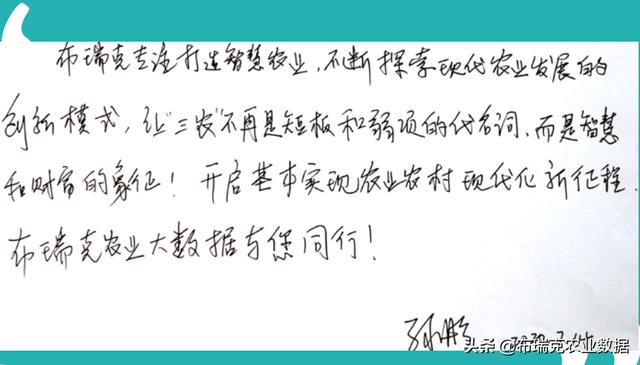 布瑞克专注打造智慧农业，不断探索现代农业发展的
创新模式，让“三农”不再是短板和弱项的代名词，而是智慧
和财富的象征！开启基本实现农业农村现代化新征程，
布瑞克农业大数据与您同行！
头条@布瑞克农业数据